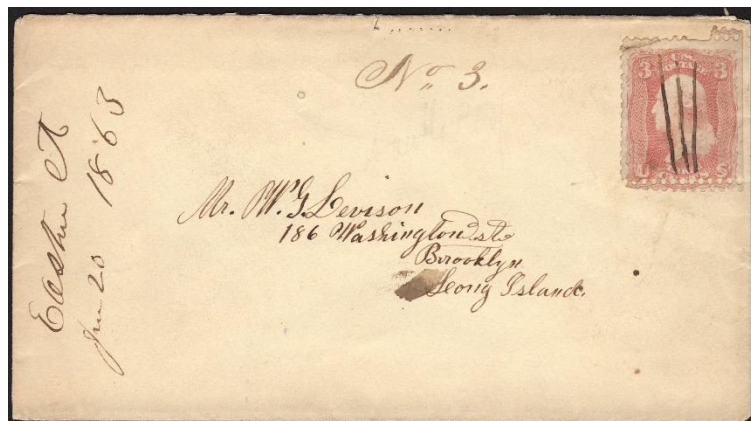 No. 3.
Easton Ct
Jan 20 1863
Mr. W. G. Levison
186 Washington st
Brooklyn
Long Island.
3 3
U S